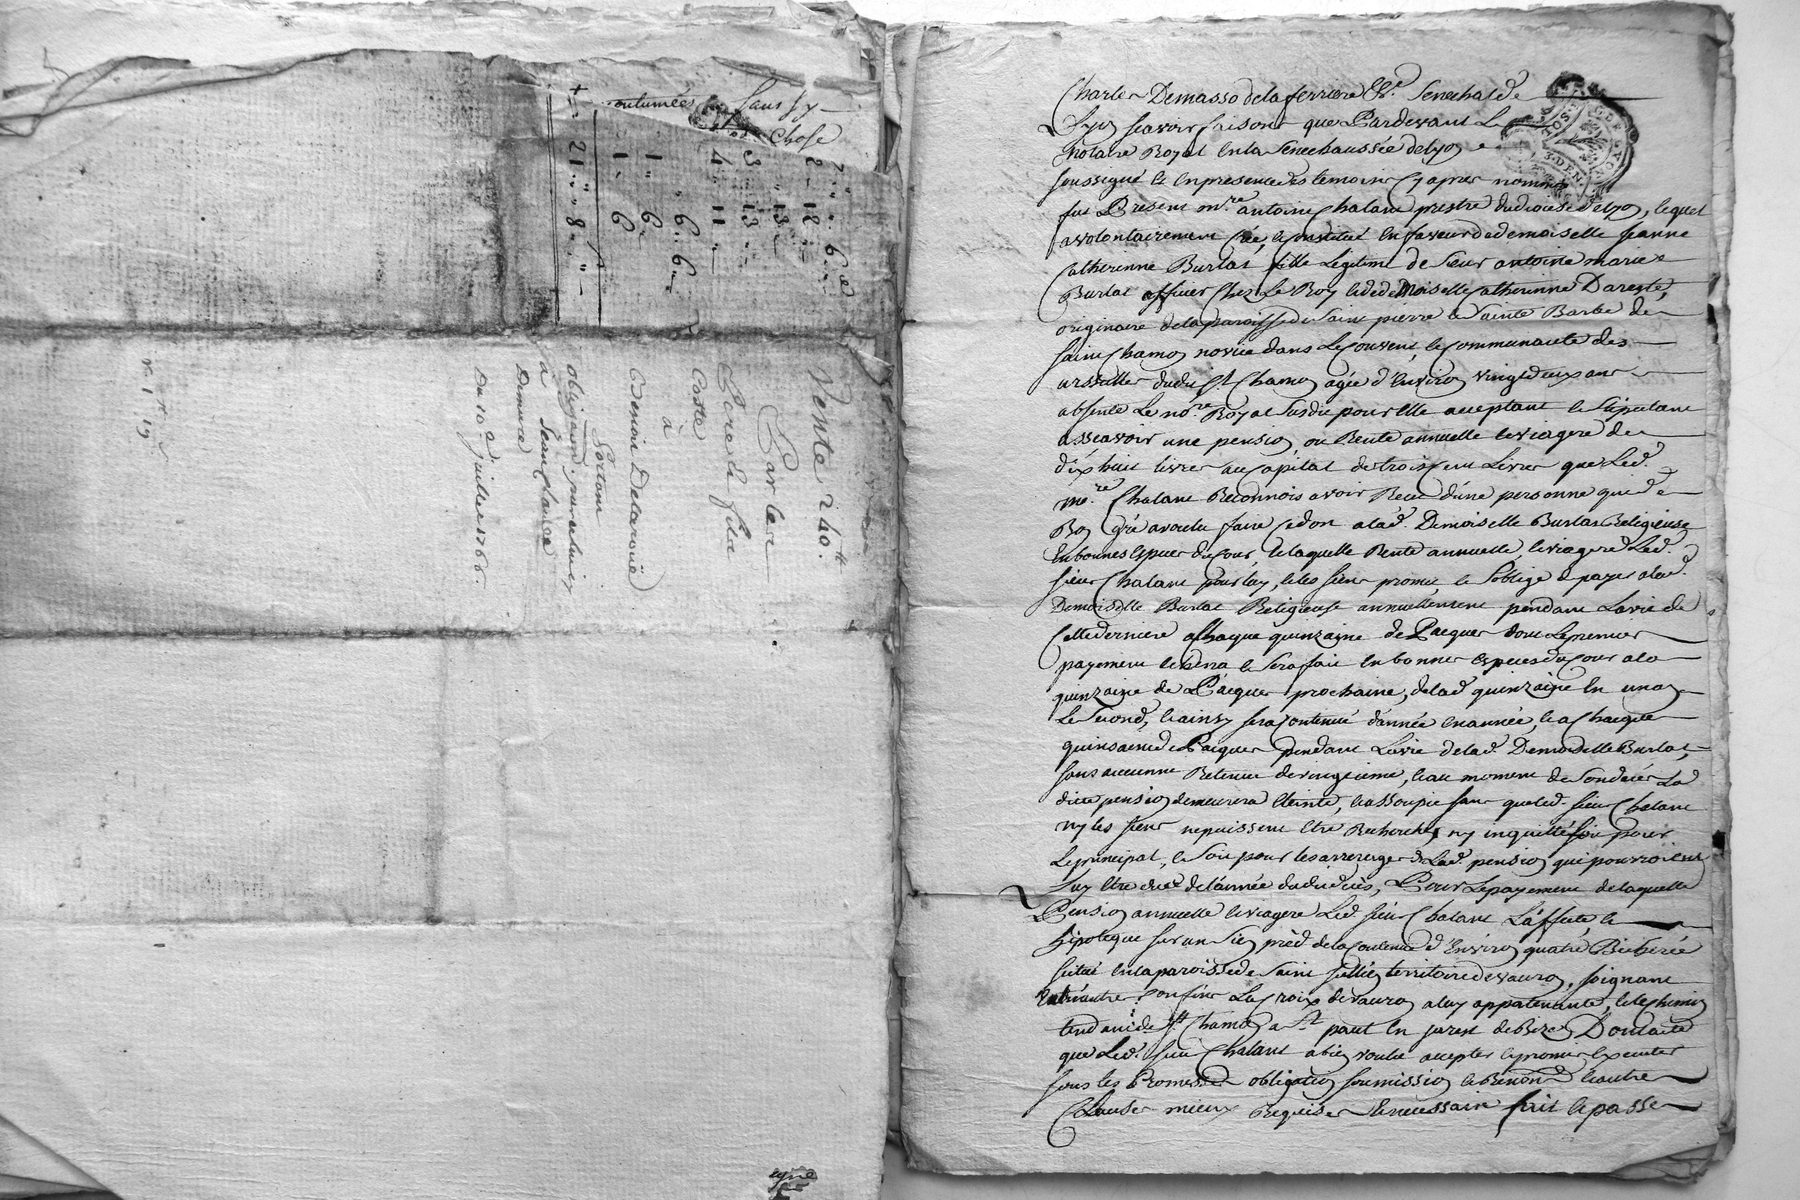 outumées Sauf sy
chose
2 " " 6 d
2 - 18 "
" 13 " -
3 " 13 " -
4 " 11 " -
" 6 " 6 "
1 " 6 "
1 " 6
21 " " 8 " "
Vente 240.tt
Par les
Pere & fils
Coste
à
Benoit Delaroüe
Portant
obligaon. par celuici
à Jean
Demeure
Du 10e. juillet 1766.
Charles Demasso de la ferriere Ecr. Senechal de
Lyon scavoir faisons que Pardevant Le
Notaire Royal en la Senechaussée de Lyon
soussigné & en presence des temoins cy apres nommés
fut Present mre. antoine Chalanc prestre du diocise de Lyon, lequel
a volontairement créé, & constitué en faveur de demoiselle Jeanne
Catherinne Burlat fille Legitime de Sieur antoine marie
Burlat officier Chez Le Roy & de demoiselle Catherinne Dareste,
originaire de la paroisse de Saint pierre & Sainte Barbe de
Saint Chamon novice dans Le Couvent, & Communauté des
urssulles dudit St. Chamon agée d'Environ vingt deux ans
absente Le nore. Royal susdit pour Elle acceptant & stipulant
asscavoir une pension, ou Rente annuelle & viagere de
dix huit livres au Capital de trois cent Livres que Led.
mre. Chalanc Reconnois avoir Receu d'une personne qui de
Bon gré a voulu faire ce don a lad. Demoiselle Burlat Religieuse
En bonnes Espece du Cour, & laquelle Rente annuelle, & viagere Led.
sieur Chalanc pour luy, & les siens promet & s'oblige de payer a lad.
Demoiselle Burlat Religieuse annuellement pendant La vie de
Cette derniere a Chaque quinzaine de Pacques dont Le premier
payement Echerra & sera fait En bonnes Especes du Cour a la
quinzaine de Pacques prochaine, de lad. quinzaine En un an
Le second, & ainsy sera Continué d'année En année, & a Chacque
quinsaine de Pacques pendant La vie de lad. Demoiselle Burlat,
sans aucunne Retenue de vingtieme, & au moment de son decés Lad
dite pension demeurera Eteinte, & assoupie sans que led. sieur Chalanc
ny les siens ne puissent Etre Recherchés, ny inquiettés soit pour
Le principal, & soit pour les arrerages de Lad. pension qui pourroient
Luy Etre dues de l'année du decés, Pour Le payement de laquelle
Pension annuelle & viagere Led. sieur Chalanc L'affecte, &
hipoteque sur un sien pred de la Contenue d'Environ quatre Bicherée
situé En la paroisse de Saint Jullien territoire de vauron, joignant
Entr'autres Confins La Croix de vauron a luy appartenante, & le Chemin
tendant de St. Chamon a St. paul En jarest de Bize Dont acte
que Led. sieur Chalanc a bien voulu accepter & promis Executer
sous les Promesses obligation soumission & Renon. & autres
Clauses mieux Requises & necessaire fait & passé